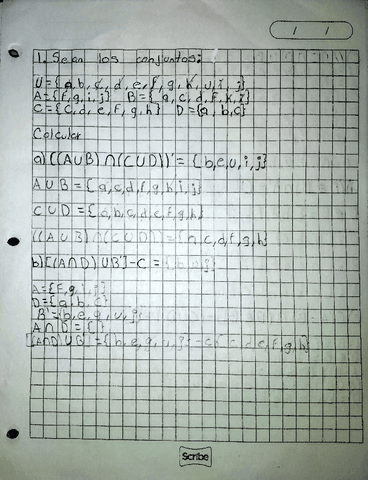 1. Sean los conjuntos:
U={a,b,c,d,e,f,g,h,u,i,j}
A={f,g,i,j} B={a,c,d,f,h,i}
C={c,d,e,f,g,h} D={a,b,c}
Calcular
a) [(A∪B)∩(C∪D)]'={b,e,u,i,j}
A∪B={a,c,d,f,g,h,i,j}
C∪D={a,b,c,d,e,f,g,h}
((A∪B)∩(C∪D))={a,c,d,f,g,h}
b)[(A∩D)∪B']-C={b,u,j}
A={f,g,i,j}
D={a,b,c}
B'={b,e,g,u,j}
A∩D={ }
[(A∩D)∪B']={b,e,g,u,j}-C{c,d,e,f,g,h}
Scribe